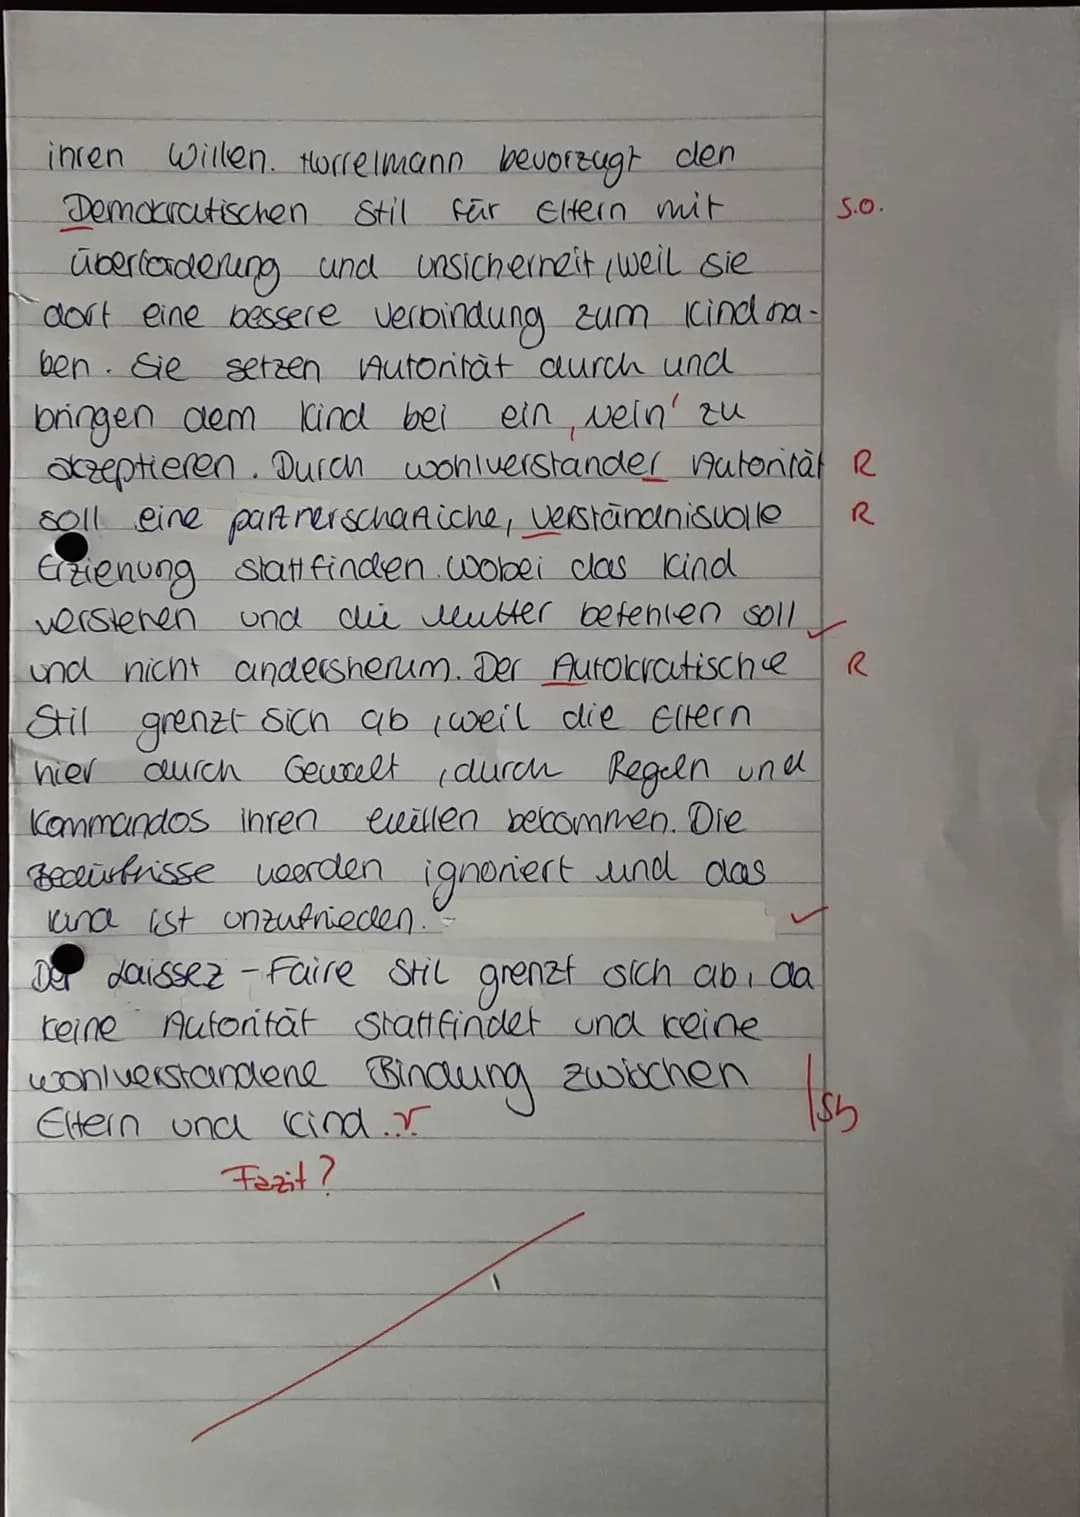 ihren Willen. Hurrelmann bevorzugt den
Demokratischen Stil für Eltern mit S.O.
überforderung und unsicherheit, weil sie
dort eine bessere verbindung zum Kind ha-
ben. Sie setzen Autorität durch und
bringen dem Kind bei ein, Nein' zu
akzeptieren. Durch wohlverstander Autorität R
soll eine partnerschaftliche, verständnisvolle R
Erziehung stattfinden. wobei das Kind
verstehen und die Mutter befehlen soll ✓
und nicht andersherum. Der Autokratische R
Stil grenzt sich ab, weil die Eltern
hier durch Gewalt, durch Regeln und
Kommandos ihren willen bekommen. Die
Bedürfnisse werden ignoriert und das
Kind ist unzufrieden. ✓
Der Laissez-Faire Stil grenzt sich ab, da
keine Autorität stattfindet und keine
wohlverstandene Bindung zwischen
Eltern und Kind. Sb
Fazit?